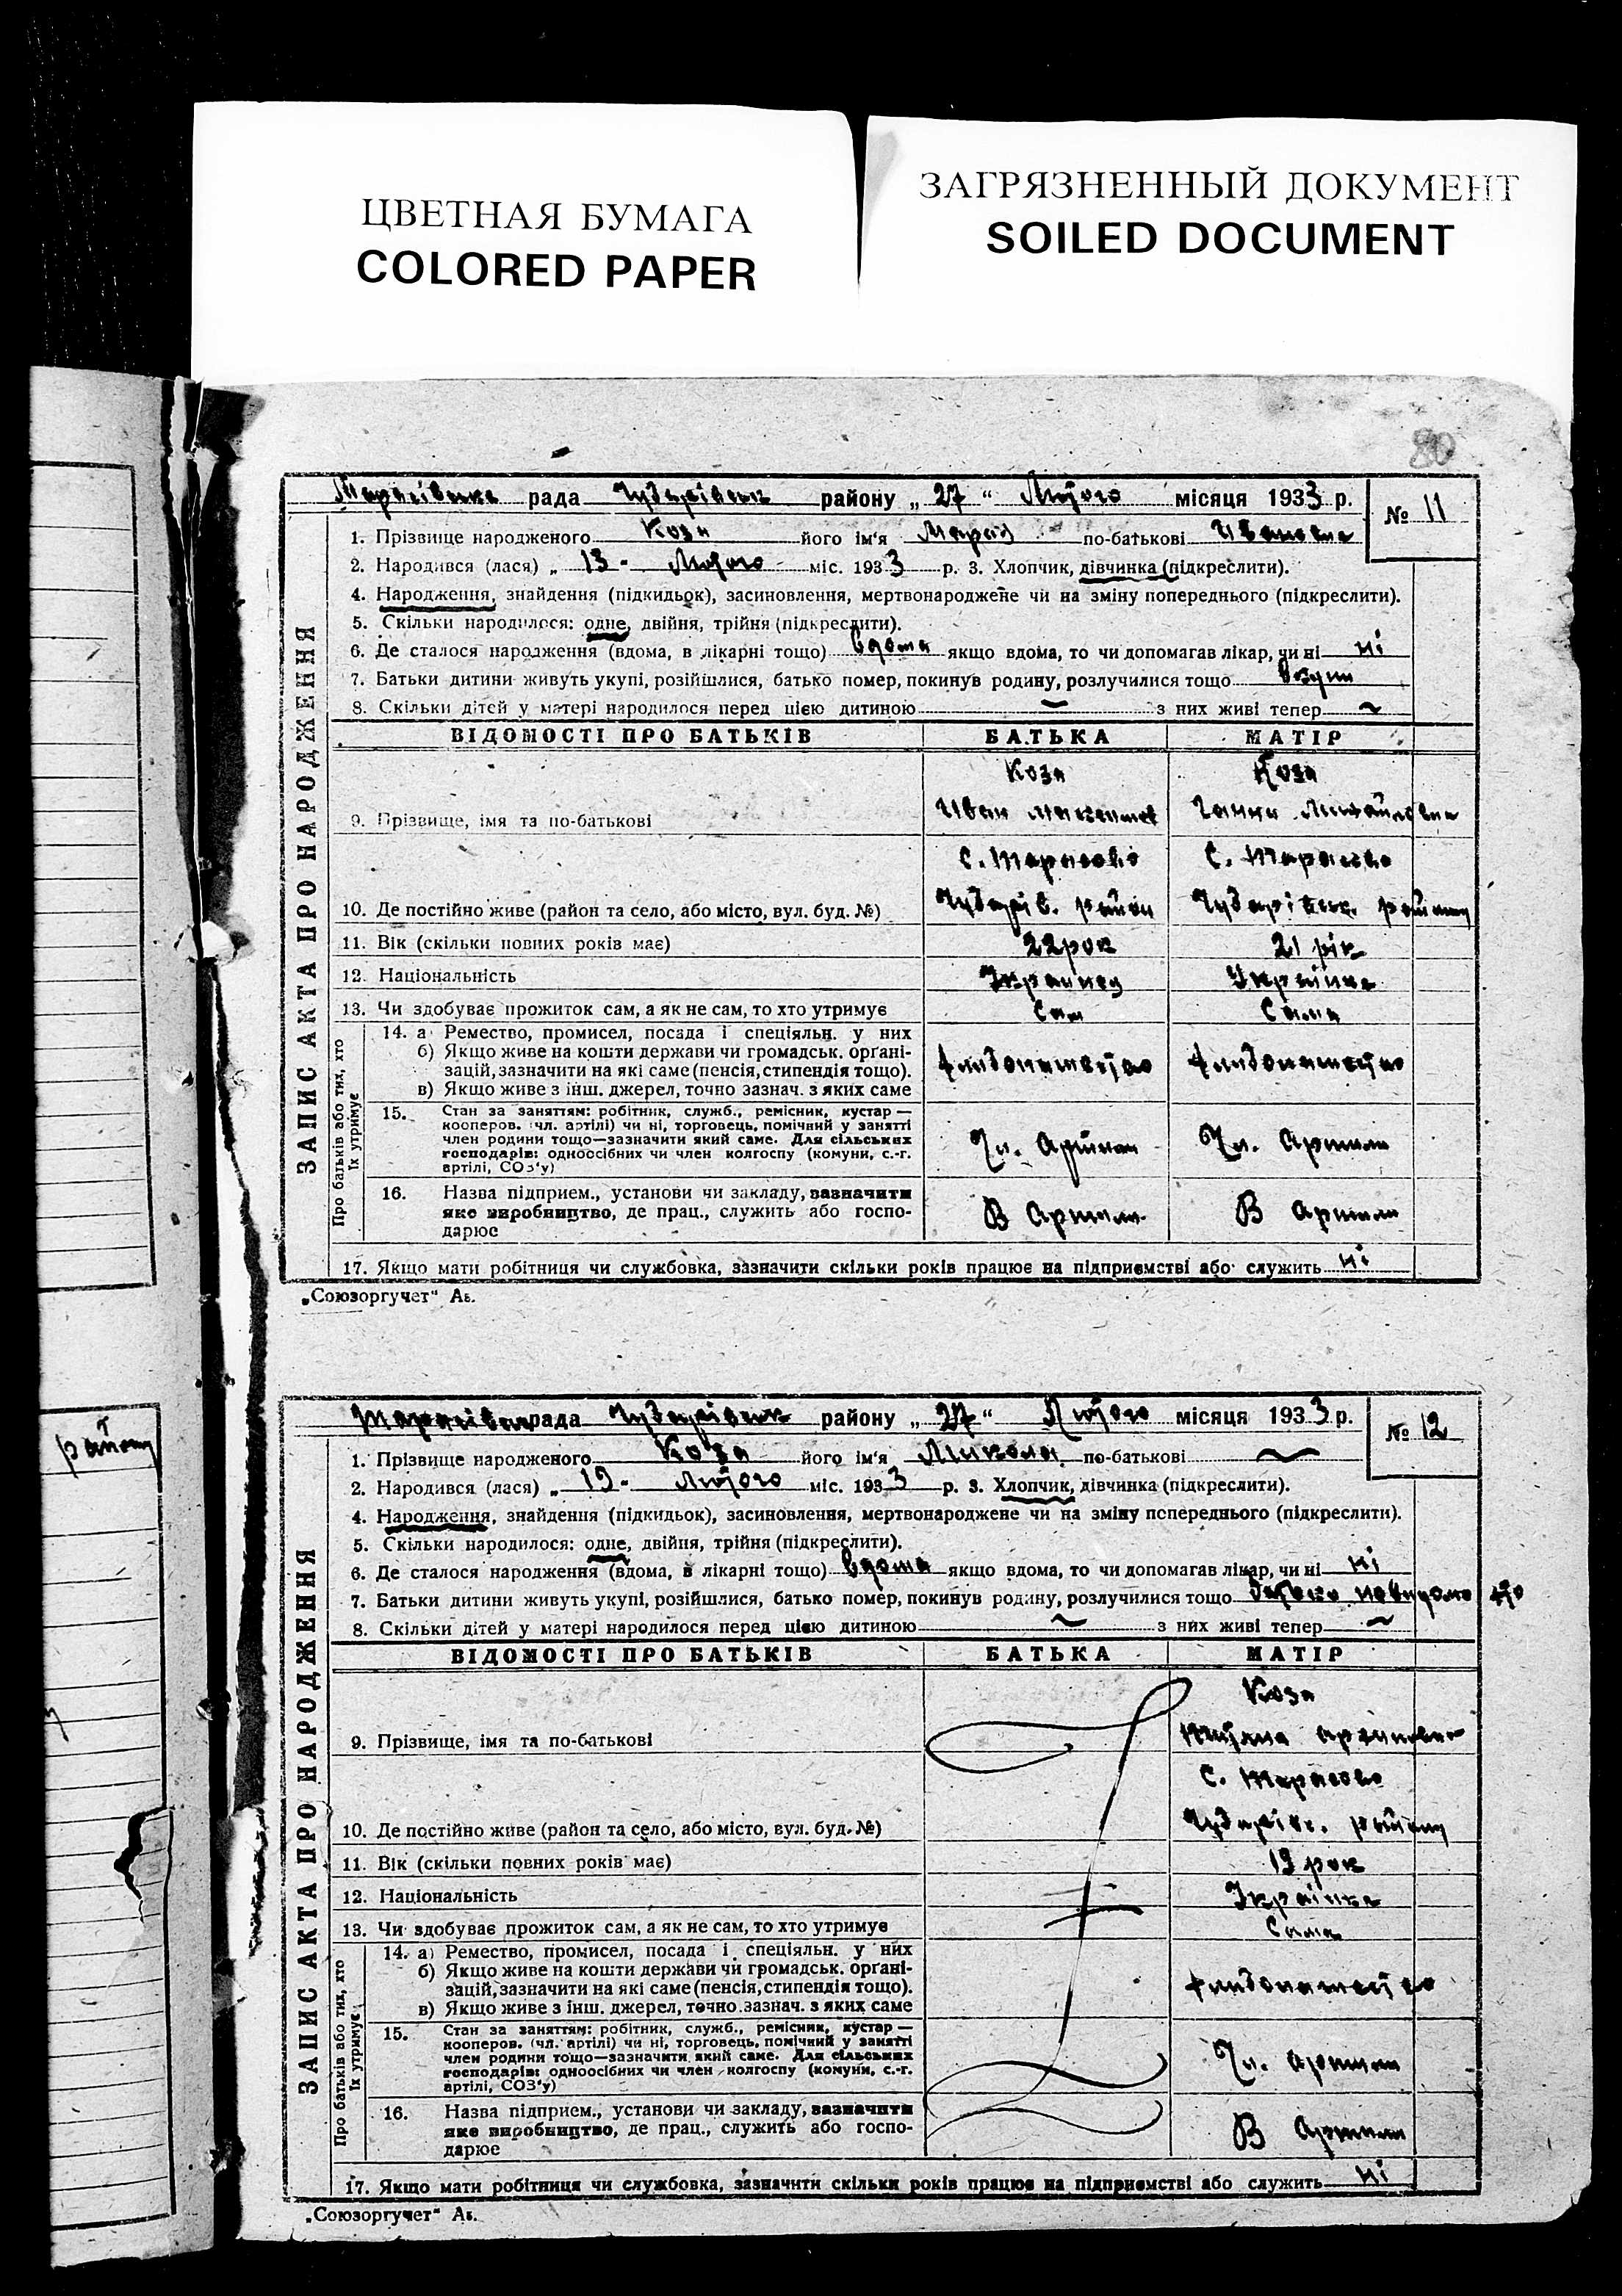 ЦВЕТНАЯ БУМАГА
COLORED PAPER
ЗАГРЯЗНЕННЫЙ ДОКУМЕНТ
SOILED DOCUMENT
80
району
рада району „ 27 “ Лютого місяця 1933 р.
№ 11
ЗАПИС АКТА ПРО НАРОДЖЕННЯ
1. Прізвище народженого Коза його ім‘я Мария по-батькові Ивановна
2. Народився (лася) „ 13 - Лютого міс. 1933 р. 3. Хлопчик, дівчинка (підкреслити).
4. Народження, знайдення (підкидьок), засиновлення, мертвонароджене чи на зміну попереднього (підкреслити).
5. Скільки народилося: одне, двійня, трійня (підкреслити).
6. Де сталося народження (вдома, в лікарні тощо) вдома якщо вдома, то чи допомагав лікар, чи ні ні
7. Батьки дитини живуть укупі, розійшлися, батько помер, покинув родину, розлучилися тощо
8. Скільки дітей у матері народилося перед цією дитиною ~ з них живі тепер ~
ВІДОМОСТІ ПРО БАТЬКІВ БАТЬКА МАТІР
Коза Коза
9. Прізвище, імя та по-батькові Иван Ганна Михайловна
с. Тарасовка с. Тарасовка
10. Де постійно живе (район та село, або місто, вул. буд. №) район району
11. Вік (скільки повних років має) 22 рок 21 рік
12. Національність Украинец Украінка
13. Чи здобуває прожиток сам, а як не сам, то хто утримує Сам Сама
Про батьків або тих, хто їх утримує
14. а Ремество, промисел, посада і спеціяльн. у них
б) Якщо живе на кошти держави чи громадськ. орґані-
зацій, зазначити на які саме (пенсія, стипендія тощо). хлибопашество хлибопашество
в) Якщо живе з інш. джерел, точно зазнач. з яких саме
15. Стан за заняттям: робітник, служб., ремісник, кустар —
кооперов. (чл. артілі) чи ні, торговець, помічний у занятті
член родини тощо—зазначити який саме. Для сільських Чл. Артили Чл. Артили
господарів: одноосібних чи член колгоспу (комуни, с.-г.
артілі, СОЗ‘у)
16. Назва підприєм., установи чи закладу, зазначити
яке виробництво, де прац., служить або госпо- В Артили В Артили
дарює
17. Якщо мати робітниця чи службовка, зазначити скільки років працює на підприємстві або служить ні
„Союзоргучет“
рада району „ 27 “ Лютого місяця 1933 р.
№ 12
ЗАПИС АКТА ПРО НАРОДЖЕННЯ
1. Прізвище народженого Коза його ім‘я Микола по-батькові ~
2. Народився (лася) „ 19 - Лютого міс. 1933 р. 3. Хлопчик, дівчинка (підкреслити).
4. Народження, знайдення (підкидьок), засиновлення, мертвонароджене чи на зміну попереднього (підкреслити).
5. Скільки народилося: одне, двійня, трійня (підкреслити).
6. Де сталося народження (вдома, в лікарні тощо) вдома якщо вдома, то чи допомагав лікар, чи ні ні
7. Батьки дитини живуть укупі, розійшлися, батько помер, покинув родину, розлучилися тощо
8. Скільки дітей у матері народилося перед цією дитиною ~ з них живі тепер ~
ВІДОМОСТІ ПРО БАТЬКІВ БАТЬКА МАТІР
Коза
9. Прізвище, імя та по-батькові
с. Тарасовка
10. Де постійно живе (район та село, або місто, вул. буд. №) району
11. Вік (скільки повних років має) 19 рок
12. Національність Украінка
13. Чи здобуває прожиток сам, а як не сам, то хто утримує Сама
Про батьків або тих, хто їх утримує
14. а) Ремество, промисел, посада і спеціяльн. у них
б) Якщо живе на кошти держави чи громадськ. орґані-
зацій, зазначити на які саме (пенсія, стипендія тощо). хлибопашество
в) Якщо живе з інш. джерел, точно зазнач. з яких саме
15. Стан за заняттям: робітник, служб., ремісник, кустар —
кооперов. (чл. артілі) чи ні, торговець, помічний у занятті
член родини тощо—зазначити який саме. Для сільських Чл. Артили
господарів: одноосібних чи член колгоспу (комуни, с.-г.
артілі, СОЗ‘у)
16. Назва підприєм., установи чи закладу, зазначити
яке виробництво, де прац., служить або госпо- В Артили
дарює
17. Якщо мати робітниця чи службовка, зазначити скільки років працює на підприємстві або служить ні
„Союзоргучет“